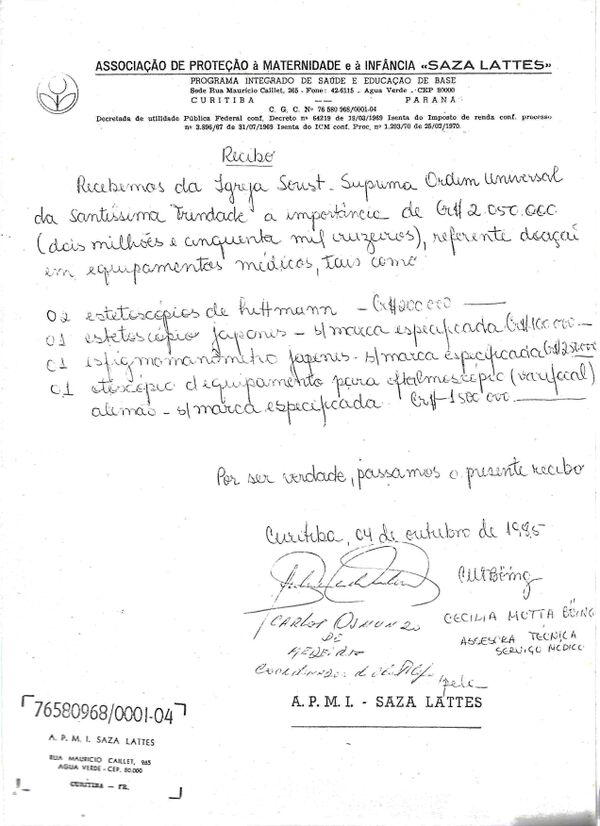 ASSOCIAÇÃO DE PROTEÇÃO à MATERNIDADE e à INFÂNCIA «SAZA LATTES»
PROGRAMA INTEGRADO DE SAÚDE E EDUCAÇÃO DE BASE
Sede Rua Maurício Caillet, 265 - Fone: 42-6115 - Agua Verde - CEP 80000
CURITIBA —— PARANÁ
C. G. C. Nº 76 580 968/0001-04
Decretada de utilidade Pública Federal conf. Decreto nº 64219 de 19/03/1969 Isenta do Imposto de renda conf. processo
nº 3.896/67 de 31/07/1969 Isenta do ICM conf. Proc. nº 1.293/70 de 25/03/1970.
Recibo
Recebemos da Igreja Soust. Suprema Ordem Universal
da Santíssima Trindade a importância de Cr$ 2.050.000
(dois milhões e cinquenta mil cruzeiros), referente doação
em equipamentos médicos, tais como
02 estetoscópios de - Cr$ 200 000
01 estetoscópio japonês - s/marca especificada Cr$ 100 000
01 esfigmomanômetro japonês - s/marca especificada Cr$ 250 000
01 otoscópio d'equipamento para oftalmoscópio (varifocal)
alemão - s/marca especificada Cr$ 1500 000
Por ser verdade, passamos o presente recibo
Curitiba, 04 de outubro de 1985
CARLOS OSMUNDO
DE
MEDEIROS
CECILIA MOTTA BÖING
ASSESSORA TÉCNICA
SERVIÇO MÉDICO
pela
A. P. M. I. - SAZA LATTES
76580968/0001-04
A. P. M. I. SAZA LATTES
RUA MAURICIO CAILLET, 265
AGUA VERDE - CEP. 80.000
CURITIBA - PR.